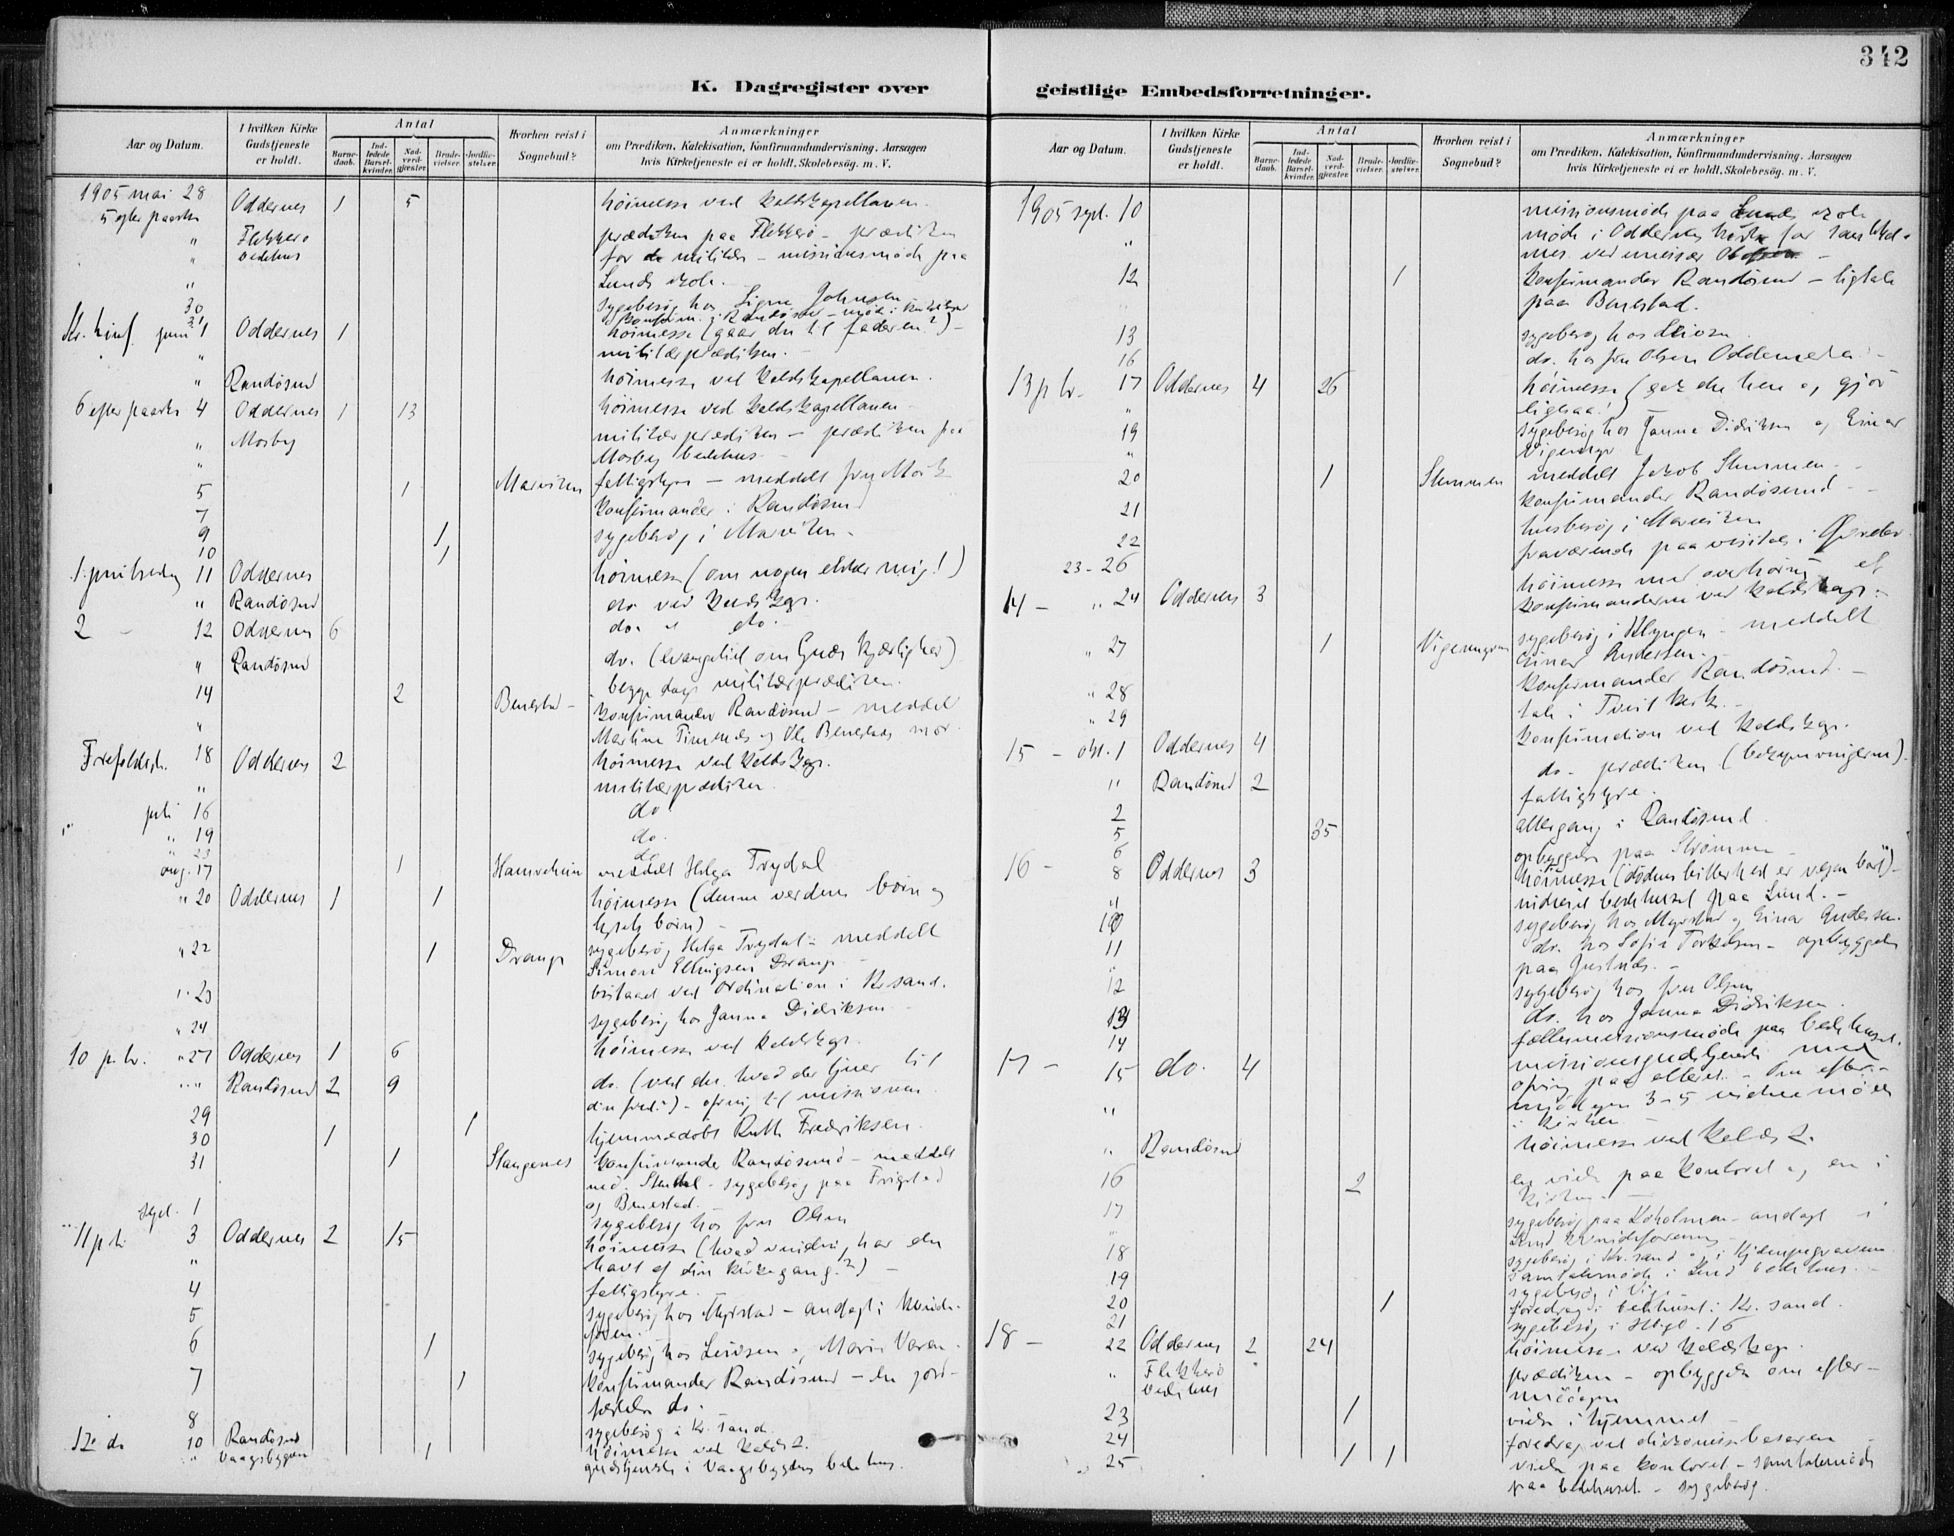 342
K. Dagregister over geistlige Embedsforretninger.
Aar og Datum.
I hvilken Kirke Gudstjeneste er holdt.
Antal
Barnedaab.
Indledede Barselkvinder.
Nadverdgjester.
Brudevielser.
Jordfæstelser.
Hvorhen reist i Sognebud?
Anmærkninger
om Prædiken, Katekisation, Konfirmandundervisning. Aarsagen
hvis Kirketjeneste ei er holdt. Skolebesøg. m. V.
1905 mai 28 Oddernes 1 5 høimesse ved kaldskapellanen.
5 efter paaske " Flekkerø prædiken paa Flekkerø - prædiken
" bedehus for militær - missionsmøde paa
" Lunds skole.
30 sygebesøg hos Signe Johnsen
31 konfirm. i Randøsund - møde i
Kr. himf. juni 1 Oddernes 1 høimesse (gaar du til faderen?) -
" militærprædiken. -
" Randøsund høimesse ved kaldskapellanen.
6 efter paaske 4 Oddernes 1 13 høimesse ved kaldskapellanen -
" Mosby militærprædiken - prædiken paa
" Mosby bedehus -
5 1 Marviken fattigstyre - meddelt fru Mørk
7 konfirmander i Randøsund
9 1 sygebesøg i Marviken -
10 1
1. pintsedag 11 Oddernes høimesse (om nogen elsker mig!)
" Randøsund do ved kaldskap.
2 - 12 Oddernes 6 do. " do. -
" Randøsund do. (evangeliet om Guds kjærlighed)
begge dage militærprædiken.
14 2 Benestad - konfirmander Randøsund - meddelt
" Martine Timenes og Ole Benestads mor.
Trefoldigh. 18 Oddernes 2 høimesse ved kaldskap.
" militærprædiken.
juli 16 do.
" 19 do.
" 23 do
aug. 17 1 Hamreheien meddelt Helga Trydal
" 20 Oddernes 1 1 høimesse (denne verdens børn og
lysets børn) -
" 22 1 Drange sygebesøg Helga Trydal - meddelt
Simon Ellingsen Drange -
" 23 bistaaet ved ordination i Kr.sand.
" 24 sygebesøg hos Janna Didriksen -
10 p. tr. " 27 Oddernes 1 6 høimesse ved kaldskap.
" " Randøsund 2 9 do. (ved du, hvad der tjener til
din fred?) - ofring til missionen
29 1
30 1 hjemmedøbt Ruth Fredriksen.
31 1 Stangenes konfirmander Randøsund - meddelt
- sygebesøg paa Frigstad
og Benestad -
sept. 1 sygebesøg hos fru Olsen
11 p tr 3 Oddernes 2 15 høimesse (hvad vinding har du
" havt af din kirkegang?) -
4 fattigstyre. -
5 sygebesøg hos Myrstad - andagt i kvinde-
foren. -
6 1 sygebesøg hos Livdsen og Marie Varen.
7 1 konfirmander Randøsund - en jord-
fæstelse do. -
8 sygebesøg i Kr. sand
12 do 10 Randøsund høimesse ved kaldsk.
" Vaagsbygden 1 gudstjeneste i Vaagsbygdens bedehus.
Aar og Datum.
I hvilken Kirke Gudstjeneste er holdt.
Antal
Barnedaab.
Indledede Barselkvinder.
Nadverdgjester.
Brudevielser.
Jordfæstelser.
Hvorhen reist i Sognebud?
Anmærkninger
om Prædiken, Katekisation, Konfirmandundervisning. Aarsagen
hvis Kirketjeneste ei er holdt. Skolebesøg. m. V.
1905 sept. 10 missionsmøde paa Lunds skole
" møde i Oddernes kirke for
ved
12 1 konfirmander Randøsund - ligtale
paa Benestad.
13 sygebesøg hos
16 do. hos fru Olsen Oddemarka -
13 p tr. 17 Oddernes 4 26 høimesse (gak du hen og gjør
" ligesaa!)
19 sygebesøg hos Janna Didriksen og Einar
" Vigemyr -
20 1 Stemmen meddelt Jakob Stemmen -
konfirmander Randøsund -
21 husbesøg i Marviken
22 fraværende paa visitas i
23-26
14 - " 24 Oddernes 3 høimesse med overhøring af
konfirmanderne ved kaldskap. -
" 27 1 Vigemyren sygebesøg i Klyngen - meddelt
Einar Andersen. -
" 28 konfirmander Randøsund. -
" 29 tale i Tveit kirke. -
15 - okt. 1 Oddernes 4 konfirmation ved kaldskap.
" Randøsund 2 do. prædiken (bekymringerne).
2 fattigstyre.
5 35 altergang i Randøsund
6 opbyggelse paa Strømme -
16 - 8 Oddernes 3 høimesse (dødens bitterhed er vegen bort) -
" indviet bedehuset paa Lund. -
10 sygebesøg hos Myrstad og Einar Andersen.
11 do. hos Sofie Torkelsen - opbyggelse
" paa Justnes. -
12 sygebesøg hos fru Olsen
13 do. hos Janna Didriksen.
14 fællesmissionsmøde paa bedehuset.
17 - 15 do. 4 missionsgudstjeneste med
ofring paa alteret. - Om efter-
" middagen 3-5
i kirken -
" Randøsund høimesse ved kaldsk.
16 2 en vielse paa kontoret og en i
kirken. -
17 sygebesøg paa Kokolmen - andagt i
" Lund kvindeforening -
18 sygebesøg i Kr.sand og i Kjempegraven
19 samtalemøde i Lund bedehus. -
20 1 sygebesøg i Vige -
21 foredrag i bedehuset i Kr. sand.
sygebesøg i
18 - 22 Oddernes 2 24 høimesse ved kaldskap.
" Flekkerø prædiken - opbyggelse om efter-
bedehus middagen
23 1 vielse i hjemmet -
24 foredrag ved
" 25 1 1 vielse paa kontoret - samtalemøde
paa bedehuset - sygebesøg.